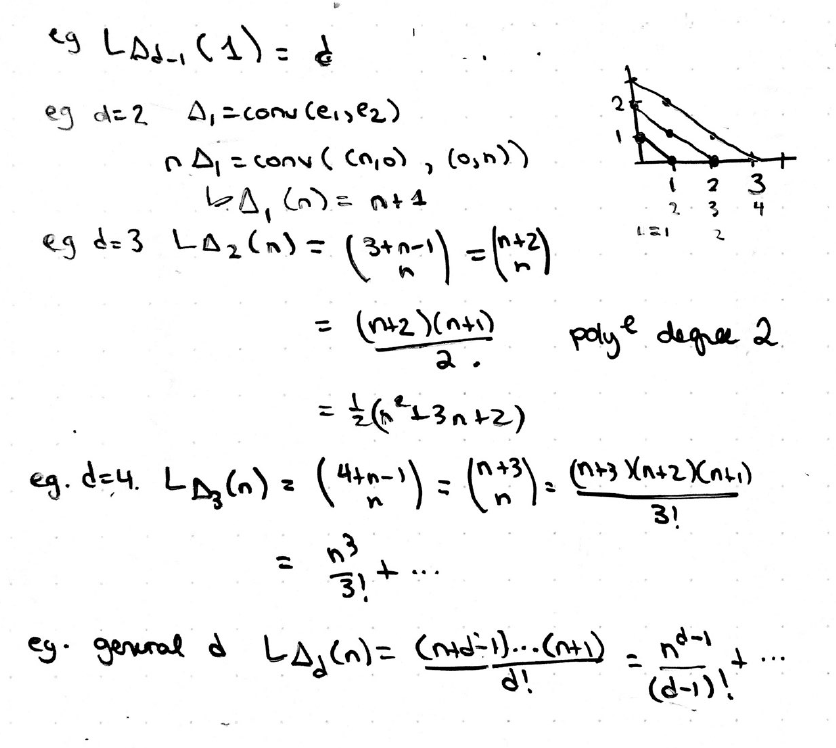 eg L_{Δ_{d-1}}(1) = d
eg d=2 Δ₁=conv(e₁,e₂)
nΔ₁=conv((n,0), (0,n))
L_{Δ₁}(n) = n+1
2
1
1 2 3
2 3 4
L=1 2
eg d=3 L_{Δ₂}(n) = \binom{3+n-1}{n} = \binom{n+2}{n}
= \frac{(n+2)(n+1)}{2}. poly^e degree 2
= ½(n²+3n+2)
eg. d=4. L_{Δ₃}(n) = \binom{4+n-1}{n} = \binom{n+3}{n} = \frac{(n+3)(n+2)(n+1)}{3!}
= \frac{n³}{3!} + ...
eg. general d L_{Δ_d}(n) = \frac{(n+d-1)...(n+1)}{d!} = \frac{n^{d-1}}{(d-1)!} + ...